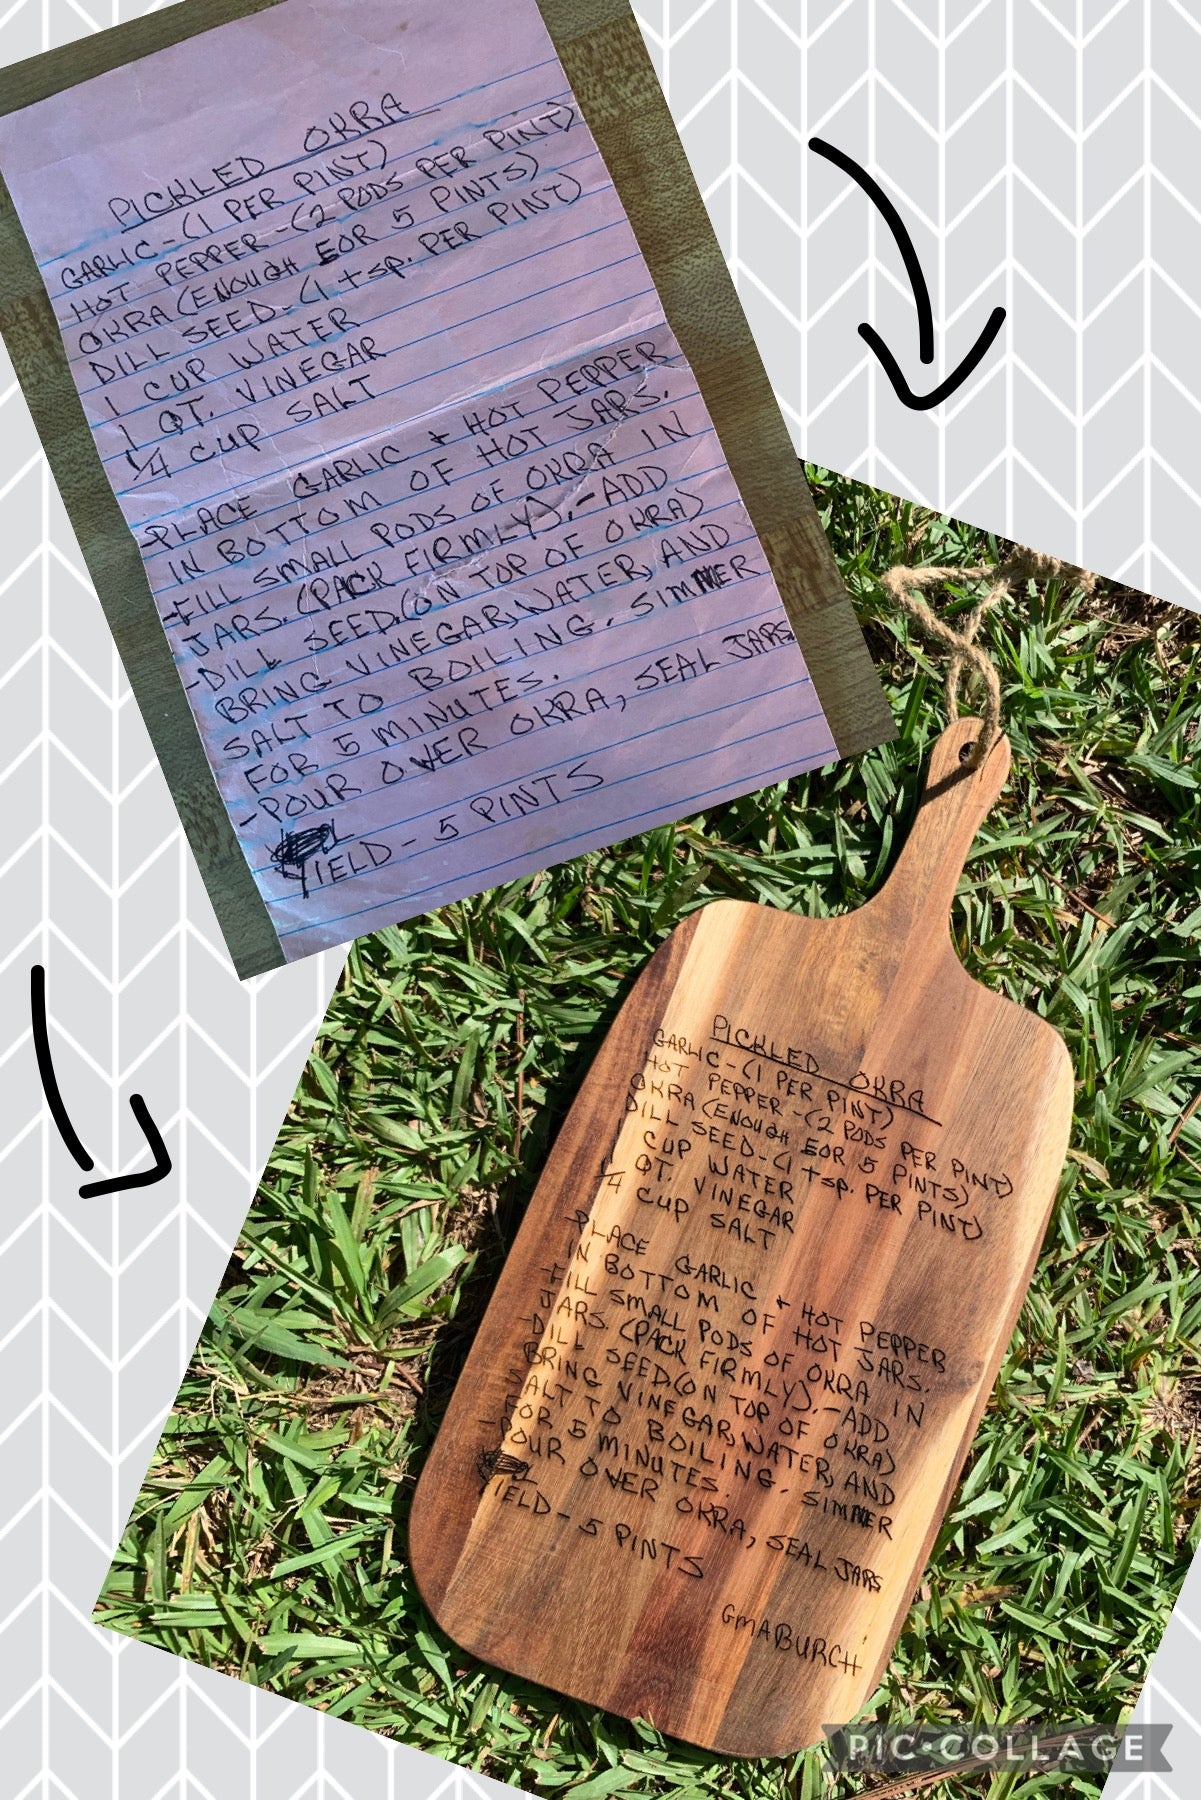 PICKLED OKRA
GARLIC-(1 PER PINT)
HOT PEPPER-(2 PODS PER PINT)
OKRA (ENOUGH FOR 5 PINTS)
DILL SEED-(1 tsp. PER PINT)
1 CUP WATER
1 QT. VINEGAR
1/4 CUP SALT
-PLACE GARLIC + HOT PEPPER
IN BOTTOM OF HOT JARS.
-FILL SMALL PODS OF OKRA IN
JARS. (PACK FIRMLY).-ADD
-DILL SEED.(ON TOP OF OKRA)
BRING VINEGAR, WATER, AND
SALT TO BOILING. SIMMER
FOR 5 MINUTES.
-POUR OVER OKRA, SEAL JARS
YIELD-5 PINTS
PICKLED OKRA
GARLIC-(1 PER PINT)
HOT PEPPER-(2 PODS PER PINT)
OKRA (ENOUGH FOR 5 PINTS)
DILL SEED-(1 tsp. PER PINT)
1 CUP WATER
1 QT. VINEGAR
1/4 CUP SALT
-PLACE GARLIC + HOT PEPPER
IN BOTTOM OF HOT JARS.
-FILL SMALL PODS OF OKRA IN
JARS. (PACK FIRMLY).-ADD
-DILL SEED(ON TOP OF OKRA)
BRING VINEGAR, WATER, AND
SALT TO BOILING. SIMMER
-FOR 5 MINUTES.
-POUR OVER OKRA, SEAL JARS
YIELD-5 PINTS
GMABURCH
PIC•COLLAGE